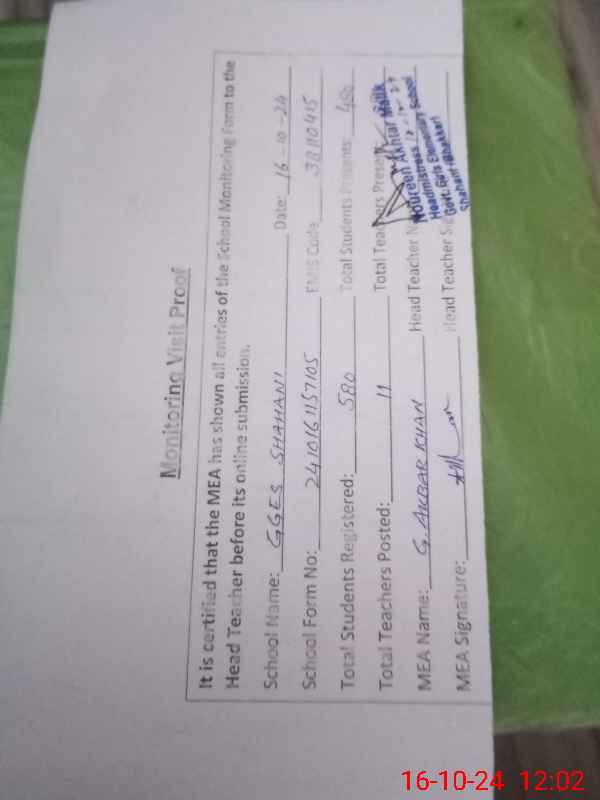 Monitoring Visit Proof
It is certified that the MEA has shown all entries of the School Monitoring Form to the
Head Teacher before its online submission.
School Name: GGES SHAHANI Date: 16-10-24
School Form No: 2410161157105 EMIS Code 38110415
Total Students Registered: 580 Total Students Presents: 480
Total Teachers Posted: 11 Total Teachers Present:
MEA Name: G. AKBAR KHAN Head Teacher N
MEA Signature: Head Teacher Si
Noureen Akhtar Malik
Headmistress
Govt. Girls Elementary School
Shahani (Bhakkar)
16-10-24 12:02